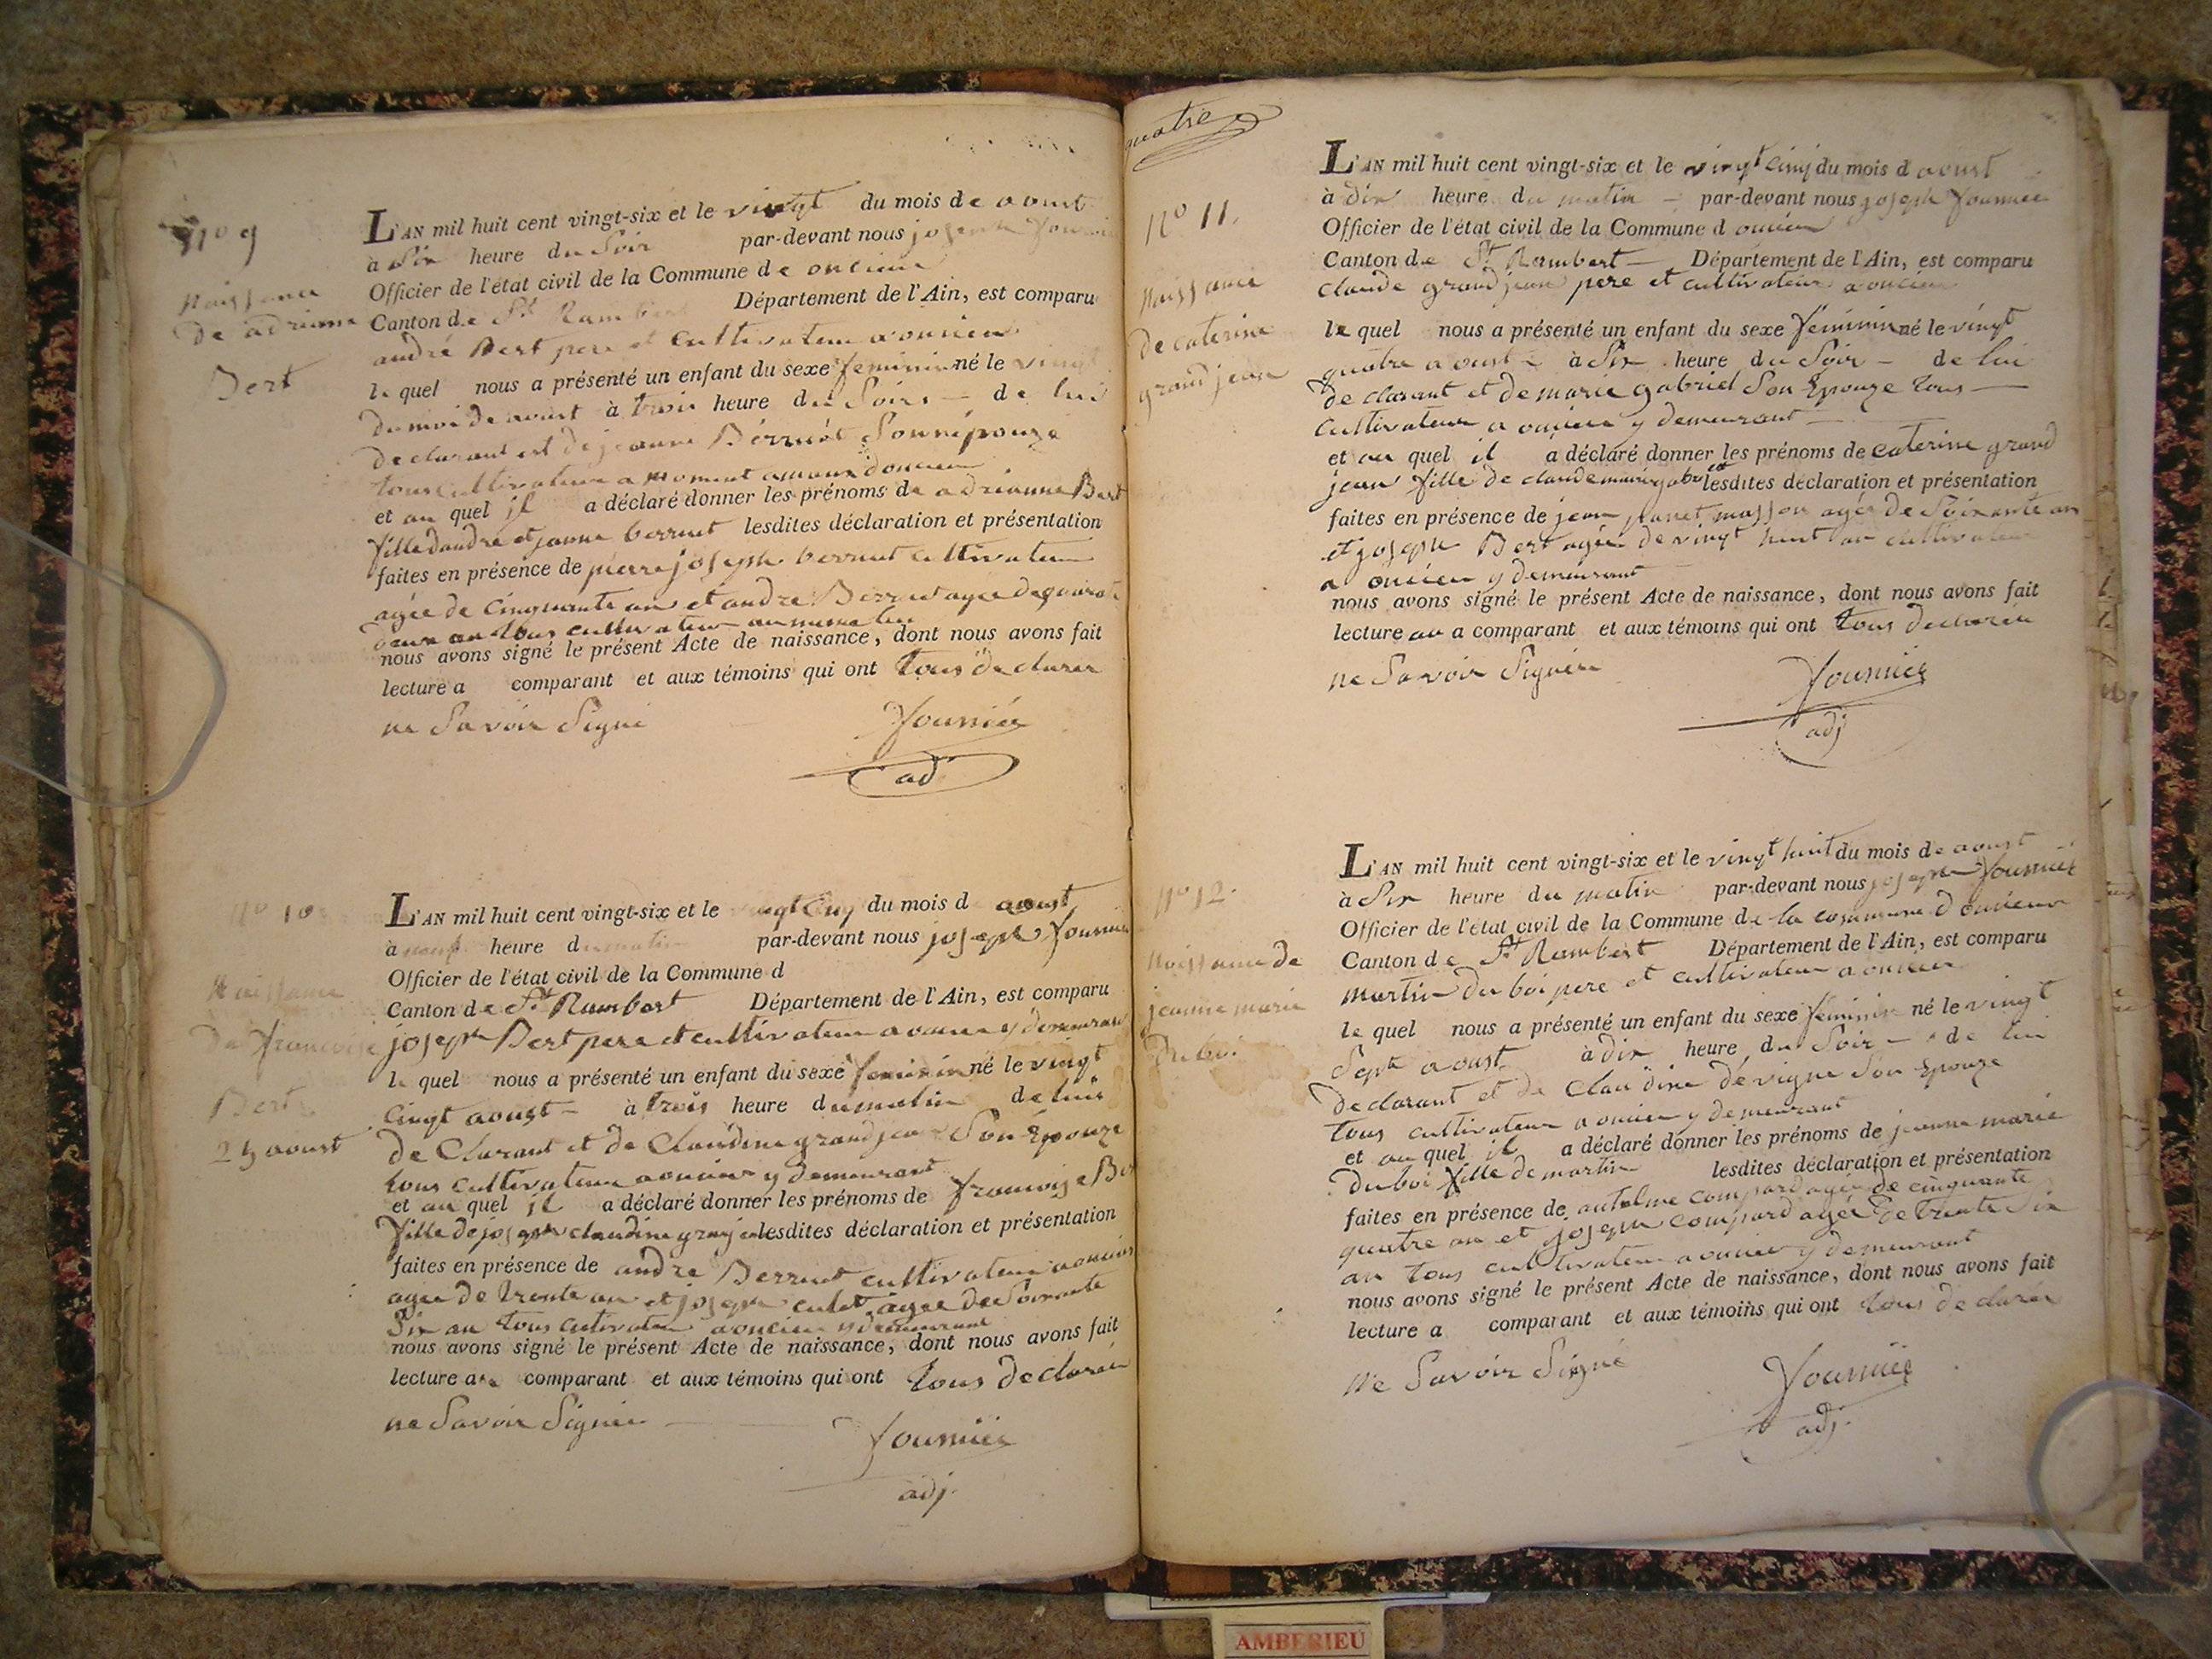 N° 9
Naissance
de adrianne
Bert
L'AN mil huit cent vingt-six et le vingt du mois de aoust
à Six heure du Soir par-devant nous joseph
Officier de l'état civil de la Commune de oncieu
Canton de St Rambert Département de l'Ain, est comparu
andré Bert pere et cultivateur a oncieu
le quel nous a présenté un enfant du sexe feminin né le vingt
du moi de aoust à trois heure du Soire - de lui
declarant et de jeanne Berrut Son népouze
tous cultivateur a
et au quel il a déclaré donner les prénoms de adrianne Bert
fille dandre et janne berrut lesdites déclaration et présentation
faites en présence de pierre joseph berrut cultivateur
agée de Cinquante an et andre Berrut agée de
deux an tous cultivateur au meme lieu
nous avons signé le présent Acte de naissance, dont nous avons fait
lecture a comparant et aux témoins qui ont tous declarer
ne Savoir Signé
fourniée
ad
N° 10
Naissance
De francoise
Bert
25 aoust
L'AN mil huit cent vingt-six et le vingt Cinq du mois d aoust
à neuf heure du matin par-devant nous joseph fournié
Officier de l'état civil de la Commune d
Canton de St Rambert Département de l'Ain, est comparu
joseph Bert pere et cultivateur a oncieu y demeurant
le quel nous a présenté un enfant du sexe feminin né le vingt
Cinqt aoust - à trois heure du matin de lui
de Clarant et de Claudine grandjean Son Epouze
tous cultivateur a oncieu y demeurant
et au quel il a déclaré donner les prénoms de francoise Be
fille de joseph claudine lesdites déclaration et présentation
faites en présence de andre Berrut cultivateur a oncieu
agée de trente an et joseph culet agée de Soixante
Six an tous cultivateur a oncieu y demeurant
nous avons signé le présent Acte de naissance, dont nous avons fait
lecture au comparant et aux témoins qui ont tous declarée
ne Savoir Signée
fourniée
adj.
quatre
N° 11.
Naissance
de caterine
grand jean
L'AN mil huit cent vingt-six et le vingt cinq du mois d aoust
à dix heure du matin - par-devant nous joseph fourniée
Officier de l'état civil de la Commune d oncieu
Canton de St Rambert - Département de l'Ain, est comparu
claude grand jean pere et cultivateur a oncieu
le quel nous a présenté un enfant du sexe féminin né le vingt
quatre aoust - à Six heure du Soir - de lui
declarant et de marie gabriel Son Epouze tous -
cultivateur a oncieu y demeurant -
et au quel il a déclaré donner les prénoms de caterine grand
jean fille de claude marie lesdites déclaration et présentation
faites en présence de jean masson agée de Soixante an
et joseph Bert agée de vingt huit an cultivateur
a oncieu y demeurant
nous avons signé le présent Acte de naissance, dont nous avons fait
lecture au a comparant et aux témoins qui ont tous declarée
ne Savoir Signée
fourniée
adj
N° 12.
Naissance de
jeanne marie
Duboi
L'AN mil huit cent vingt-six et le vingt huit du mois de aoust
à Six heure du matin par-devant nous joseph fourniée
Officier de l'état civil de la Commune de la commune d oncieux
Canton de St Rambert Département de l'Ain, est comparu
martin du boi pere et cultivateur a oncieu
le quel nous a présenté un enfant du sexe féminin né le vingt
Sept aoust à dix heure du Soir - de lui
declarant et de Claudine dévigne Son Epouze
tous cultivateur a oncieu y demeurant
et au quel il a déclaré donner les prénoms de jeanne marie
Duboi fille de martin lesdites déclaration et présentation
faites en présence de antelme compard agée de cinquante
quatre an et joseph compard agée de trente Six
an tous cultivateur a oncieu y demeurant
nous avons signé le présent Acte de naissance, dont nous avons fait
lecture a comparant et aux témoins qui ont tous declarée
Ne Savoir Signé
fourniée
adj.
AMBERIEU